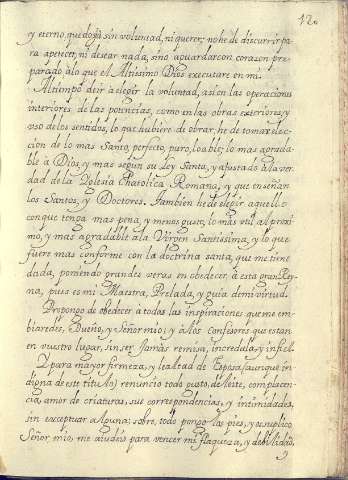 120
y eterno, que dejo sin voluntad, ni querer; no he de discurrir pa
ra apetecer, ni desear nada, sino aguardar con corazon pre
parado a lo que el Altissimo Dios executare en mi.
Al tiempo de ir a elegir la voluntad, assi en las operaciones
interiores de las potencias, como en las obras exteriores, y
vso de los sentidos, lo que hubiere de obrar, he de tomar elec
cion de lo mas Santo, perfecto, puro, loable; lo mas agrada
ble a Dios, y mas segun su ley Santa, y ajustado a la ver
dad de la Yglesia Chatolica Romana, y que enseñan
los Santos, y Doctores. Tambien he de elegir aquello
con que tenga mas pena, y menos gusto; lo mas vtil al proxi
mo, y mas agradable a la Virgen Santissima, y lo que
fuere mas conforme con la doctrina santa, que me tiene
dada, poniendo grandes veras en obedecer, a esta gran Rey
na, pues es mi Maestra, Prelada, y guia de mi virtud.
Propongo de obedecer a todas las inspiraciones que me em
biaredes, Dueño, y Señor mio; y a los Confesores que estan
en vuestro lugar, sin ser Jamas remisa, incredula, y infiel.
Y para mayor firmeza, y lealtad de Esposa (aunque in
digna de este titulo) renuncio todo gusto, deleite, complacen
cia, amor de criaturas, sus correspondencias, y intimidades,
sin exceptuar alguna; sobre todo pongo los pies, y os suplico
Señor mio, me aiudeis para vencer mi flaqueza, y